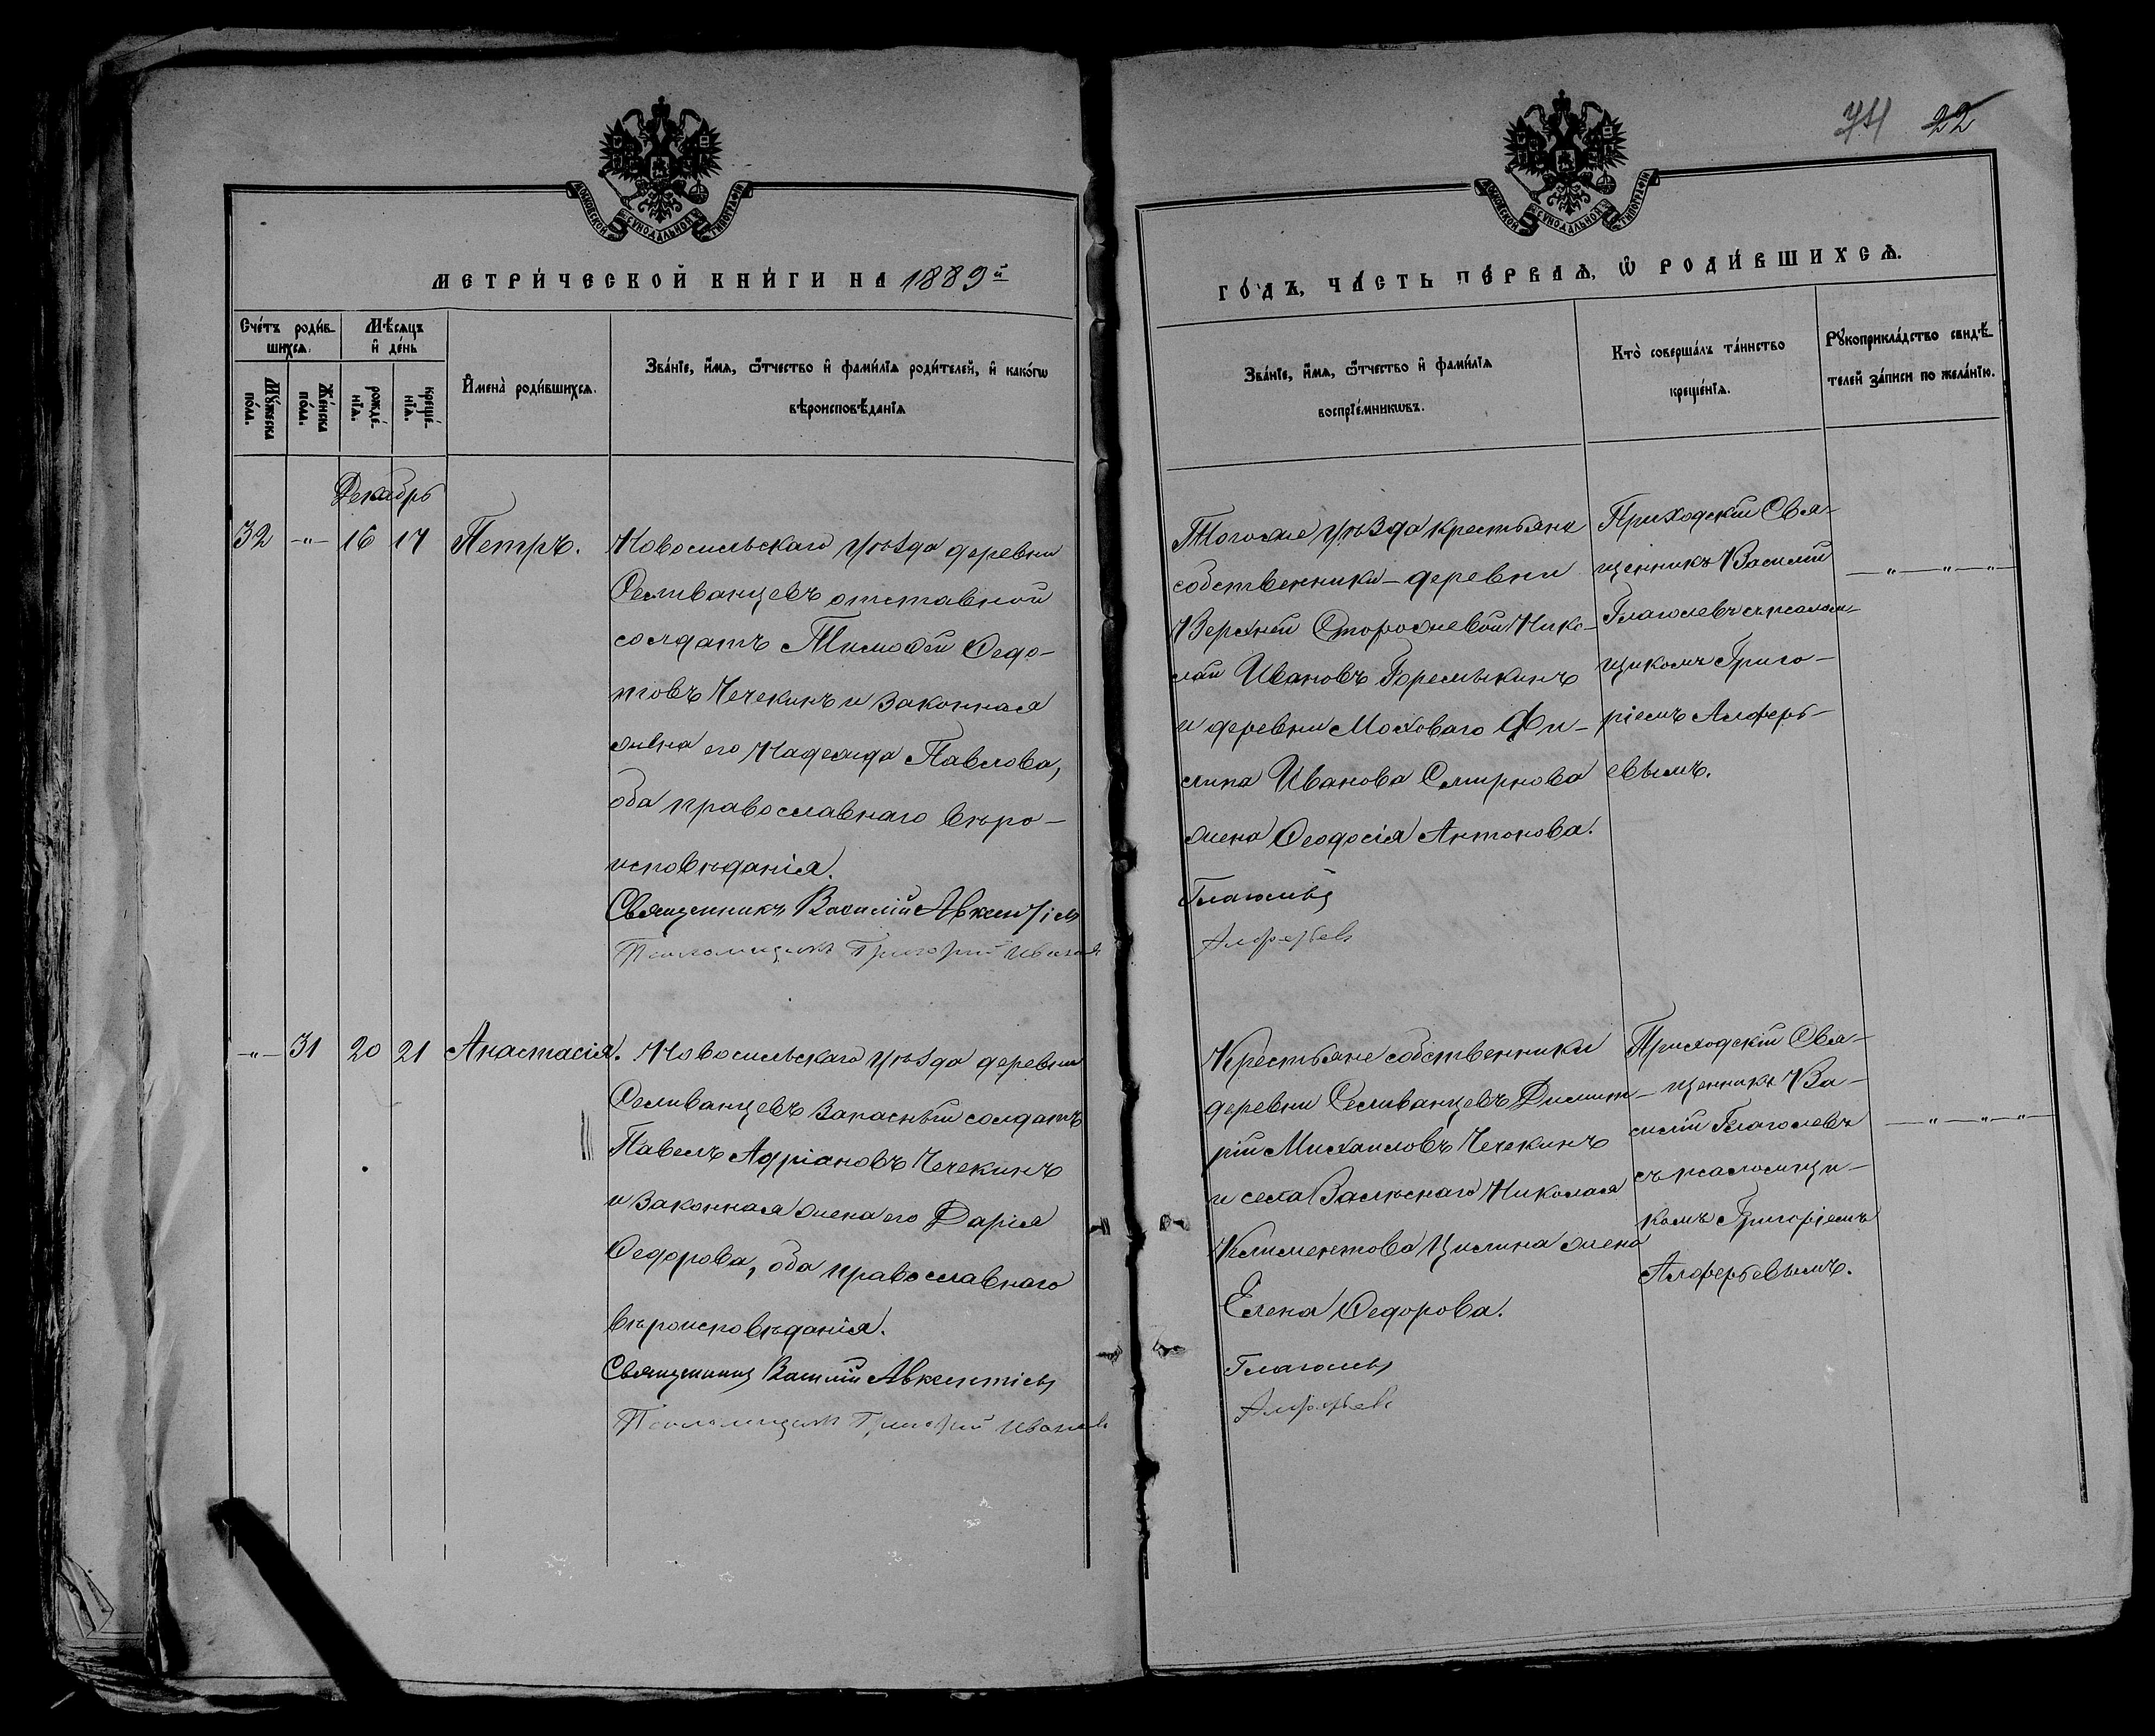 74 22
МОСКОВСКОЙ СѴНОДАЛЬНОЙ ТИПОГРАФІИ
МОСКОВСКОЙ СѴНОДАЛЬНОЙ ТИПОГРАФІИ
МЕТРИ́ЧЕСКОЙ КНИ́ГИ НА 1889й
ГО́ДЪ, ЧА́СТЬ ПЕ́РВАѦ, Ѡ҆ РОДИ́ВШИХСѦ.
Сче́тъ роди́в-
шихсѧ.
Мѣ́сѧцъ
и҆ де́нь
Мꙋ́жеска
по́ла.
Же́нска
по́ла.
рожде́-
нїѧ.
креще́-
нїѧ.
И҆мена̀ роди́вшихсѧ.
Зва́нїе, и҆́мѧ, ѻ҆́тчество и҆ фами́лїѧ роди́телей, и҆ како́гѡ
вѣроисповѣ́данїѧ
Зва́нїе, и҆́мѧ, ѻ҆́тчество и҆ фами́лїѧ
воспрїе́мникѡвъ.
Кто̀ соверша́лъ та́инство
креще́нїѧ.
Рꙋкоприкла́дство свидѣ́-
телей за́писи по жела́нїю.
Декабрь
32 -„- 16 17 Петръ.
Новосильскаго уѣзда деревни
Селиванцевъ отставной
солдатъ Тимоѳей Ѳедо-
товъ Чечекинъ и законная
жена его Надежда Павлова,
оба православнаго вѣро-
исповѣданія.
Священникъ Василій Авкентіев
Псаломщикъ Григорій Иванов
Тогоже уѣзда крестьяне
собственники - деревни
Верхней Сторожевой Нико-
лай Ивановъ Горемыкинъ
и деревни Моховаго Фи-
липа Иванова Смирнова
жена Ѳеодосія Антонова.
Глаголевъ
Алферьевъ
Приходскій Свя-
щенникъ Василій
Глаголевъ съ псалом-
щикомъ Григо-
ріемъ Алферь-
евымъ.
— „ — „ — „ —
-„- 31 20 21 Анастасія.
Новосильскаго уѣзда деревни
Селиванцевъ запасный солдатъ
Павелъ Адріановъ Чечекинъ
и законная жена его Дарія
Ѳедорова, оба православнаго
вѣроисповѣданія.
Священникъ Василій Авкентіев
Псаломщикъ Григорій Иванов
Крестьяне собственники
деревни Селиванцевъ Димит-
рій Михаиловъ Чечекинъ
и села Николая
Климентова жена
Елена Ѳедорова.
Глаголевъ
Алферьевъ
Приходскій Свя-
щенникъ Ва-
силій Глаголевъ
съ псаломщи-
комъ Григоріемъ
Алферьевымъ.
— „ — „ — „ —